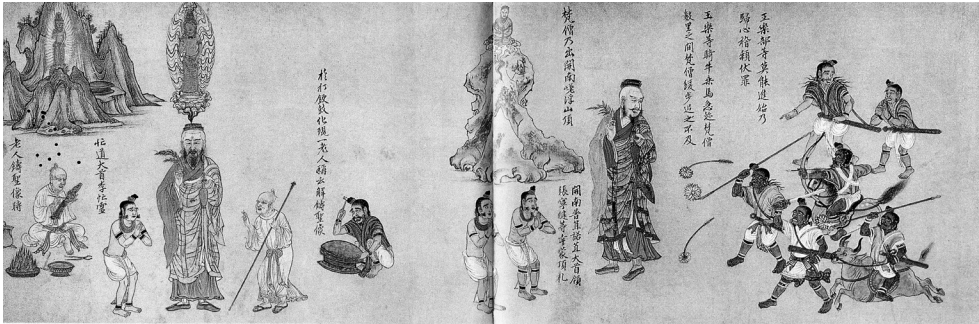 王樂部等莫能進始乃
歸心稽顙伏罪
王樂等騎牛乘馬急趁梵僧
數里之間梵僧緩步追之不及
梵僧乃出開南嵯浮山頂
開南普苴諾苴大首領
張寧健等幸蒙頂礼
於打鼓化現一老人稱云解鑄聖像
忙道大首李忙靈
老人鑄聖像時